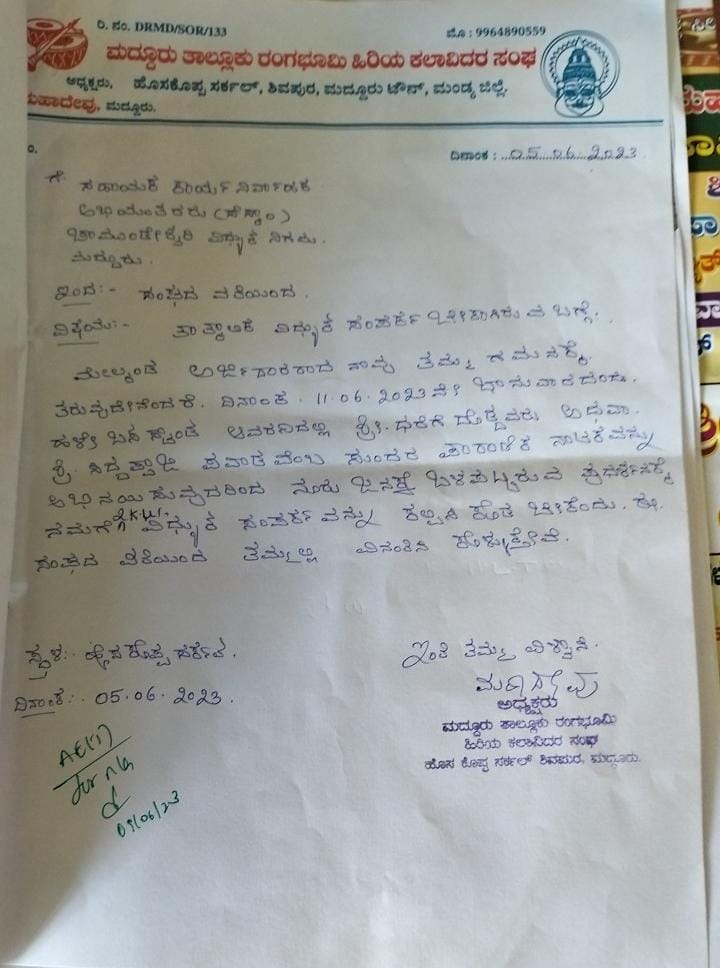 ರಿ. ನಂ. DRMD/SOR/133
ಮೊ : 9964890559
ಮದ್ದೂರು ತಾಲ್ಲೂಕು ರಂಗಭೂಮಿ ಹಿರಿಯ ಕಲಾವಿದರ ಸಂಘ
ಅಧ್ಯಕ್ಷರು, ಹೊಸಕೊಪ್ಪ ಸರ್ಕಲ್, ಶಿವಪುರ, ಮದ್ದೂರು ಟೌನ್, ಮಂಡ್ಯ ಜಿಲ್ಲೆ.
ಮಹಾದೇವು, ಮದ್ದೂರು.
ದಿನಾಂಕ : 05.06.2023
ಗೆ
ಸಹಾಯಕ ಕಾರ್ಯನಿರ್ವಾಹಕ
ಅಭಿಯಂತರರು (ಸೆಸ್ಕಾಂ)
ಚಾಮುಂಡೇಶ್ವರಿ ವಿದ್ಯುತ್ ನಿಗಮ.
ಮದ್ದೂರು.
ಇಂದ:- ಸಂಘದ ವತಿಯಿಂದ.
ವಿಷಯ:- ತಾತ್ಕಾಲಿಕ ವಿದ್ಯುತ್ ಸಂಪರ್ಕ ಬೇಕಾಗಿರುವ ಬಗ್ಗೆ.
ಮೇಲ್ಕಂಡ ಅರ್ಜಿದಾರರಾದ ನಾವು ತಮ್ಮ ಗಮನಕ್ಕೆ
ತರುವುದೇನೆಂದರೆ. ದಿನಾಂಕ. 11.06.2023ನೇ ಭಾನುವಾರದಂದು.
ಹಳೇ ಬಸ್ ಸ್ಟ್ಯಾಂಡ್ ಆವರಣದಲ್ಲಿ ಶ್ರೀ. ಧರೆಗೆ ದೊಡ್ಡವರು ಅಥವಾ.
ಶ್ರೀ. ಸಿದ್ದಪ್ಪಾಜಿ ಪವಾಡವೆಂಬ ಸುಂದರ ಪೌರಾಣಿಕ ನಾಟಕವನ್ನು
ಅಭಿನಯಿಸುವುದರಿಂದ ನೂರು ಜನಕ್ಕೆ ಪ್ರದರ್ಶನಕ್ಕೆ
ನಮಗೆ 2KW. ವಿಧ್ಯುತ ಸಂಪರ್ಕವನ್ನು ಬೇಕೆಂದು. ಈ.
ಸಂಘದ ವತಿಯಿಂದ ತಮ್ಮಲ್ಲಿ ವಿನಂತಿಸಿ ಕೊಳ್ಳುತ್ತೇವೆ.
ಸ್ಥಳ:
ದಿನಾಂಕ: 05.06.2023.
ಇಂತಿ ತಮ್ಮ ವಿಶ್ವಾಸಿ.
ಅಧ್ಯಕ್ಷರು
ಮದ್ದೂರು ತಾಲ್ಲೂಕು ರಂಗಭೂಮಿ
ಹಿರಿಯ ಕಲಾವಿದರ ಸಂಘ
ಹೊಸ ಕೊಪ್ಪ ಸರ್ಕಲ್ ಶಿವಪುರ, ಮದ್ದೂರು.
for n/a